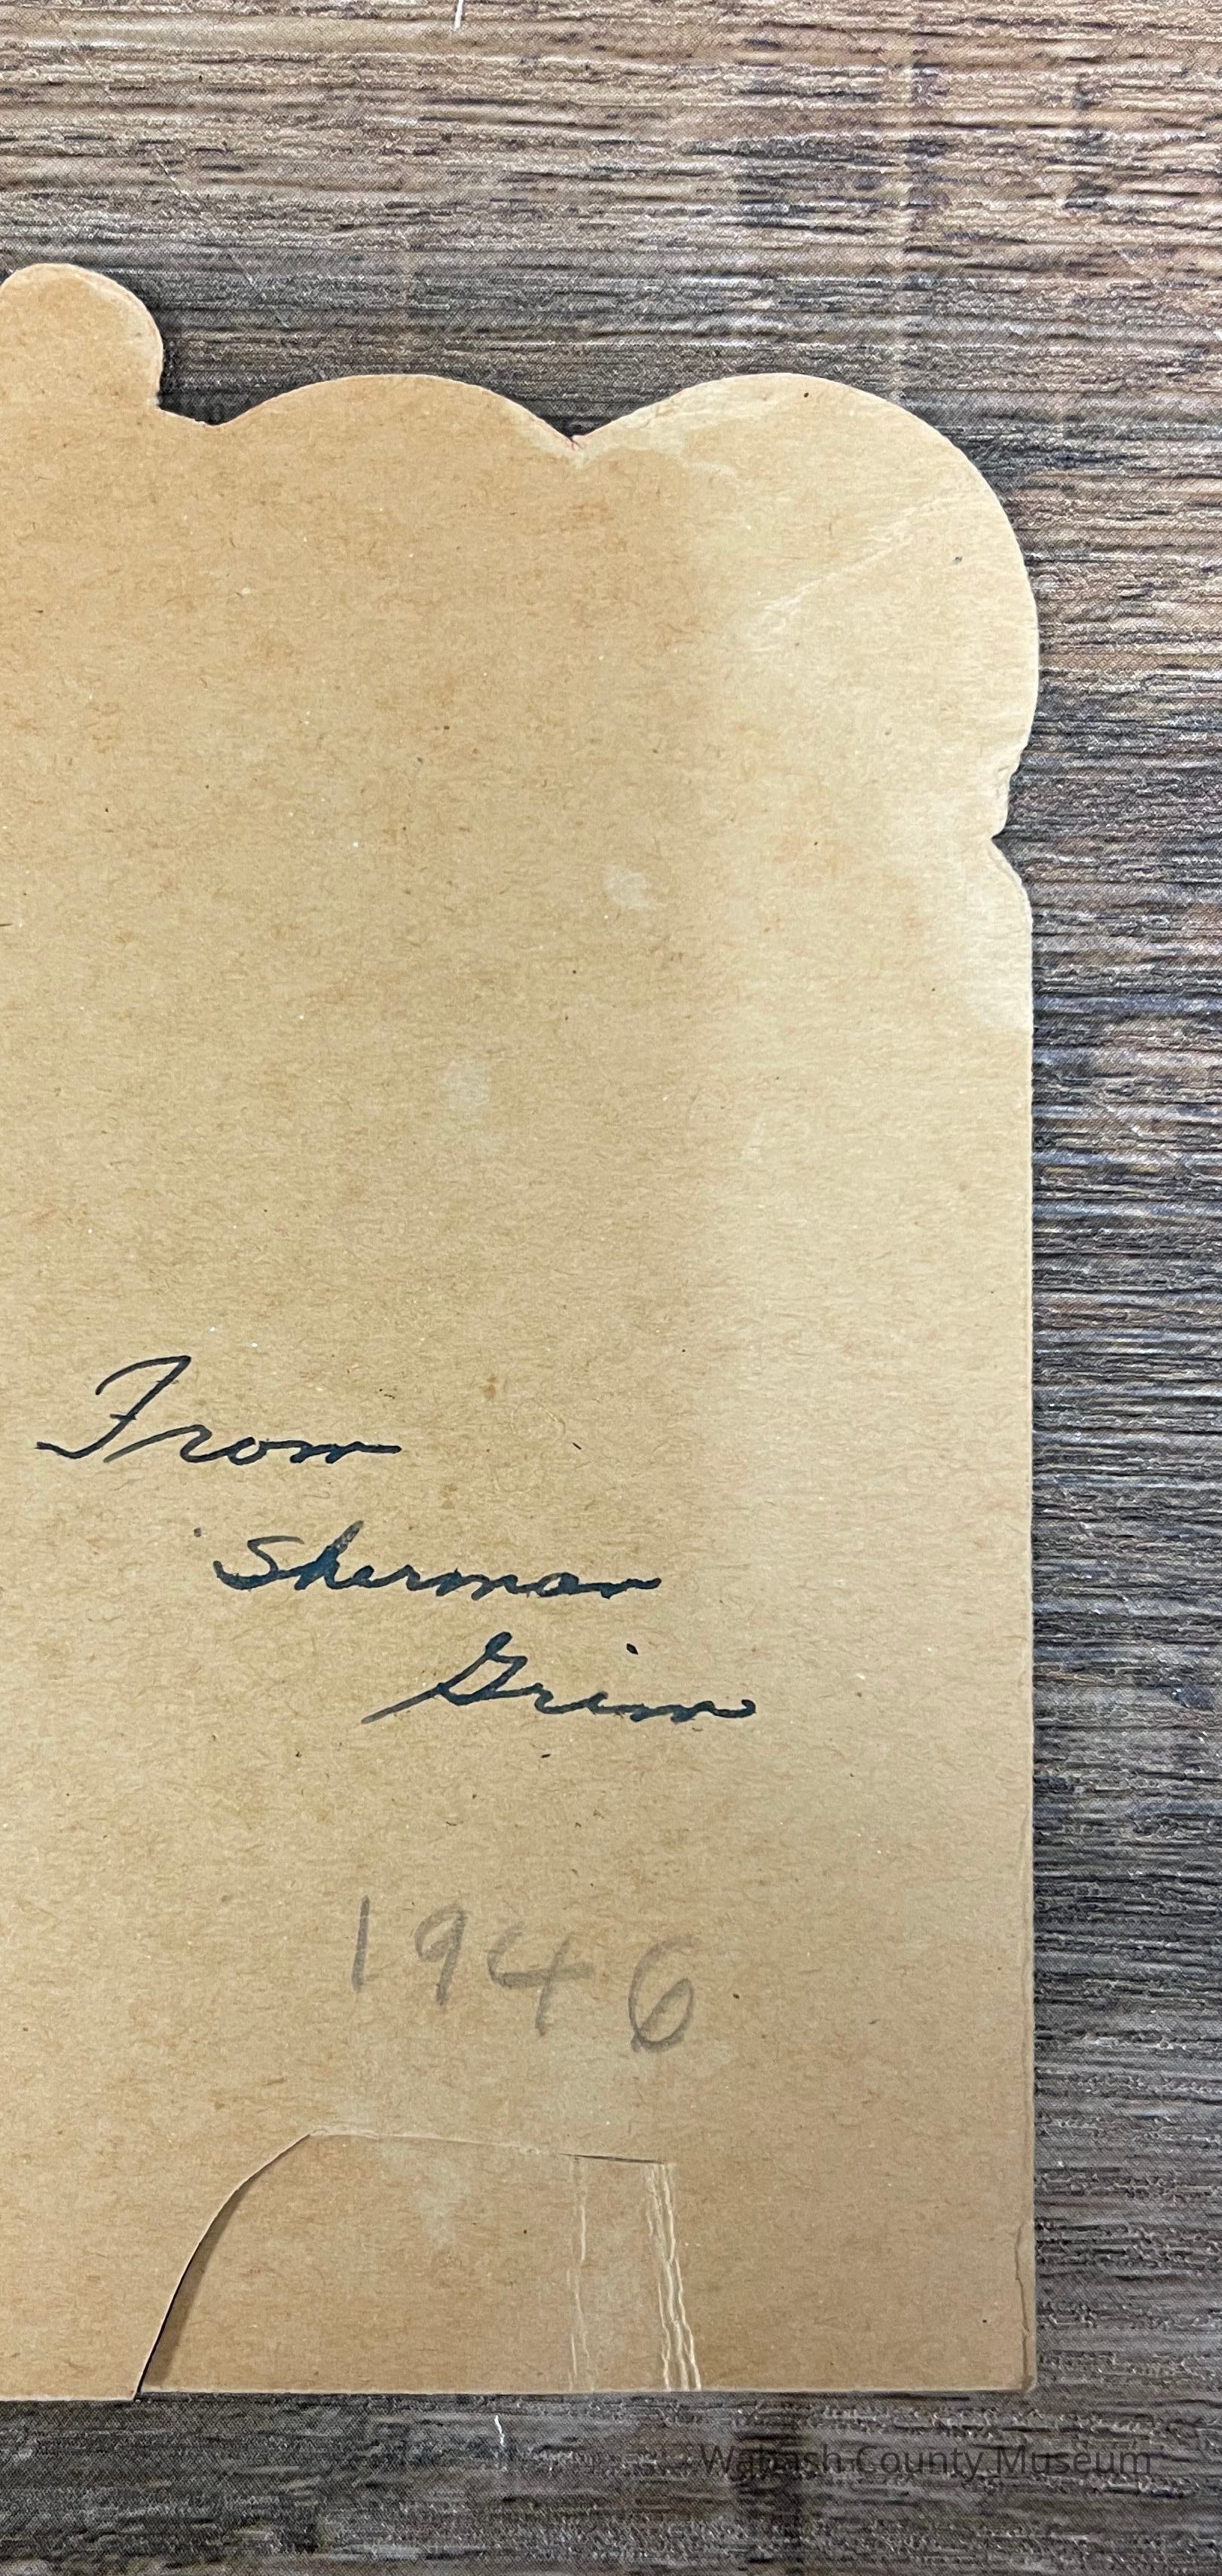 From
Sherman
Grim
1946
Wabash County Museum